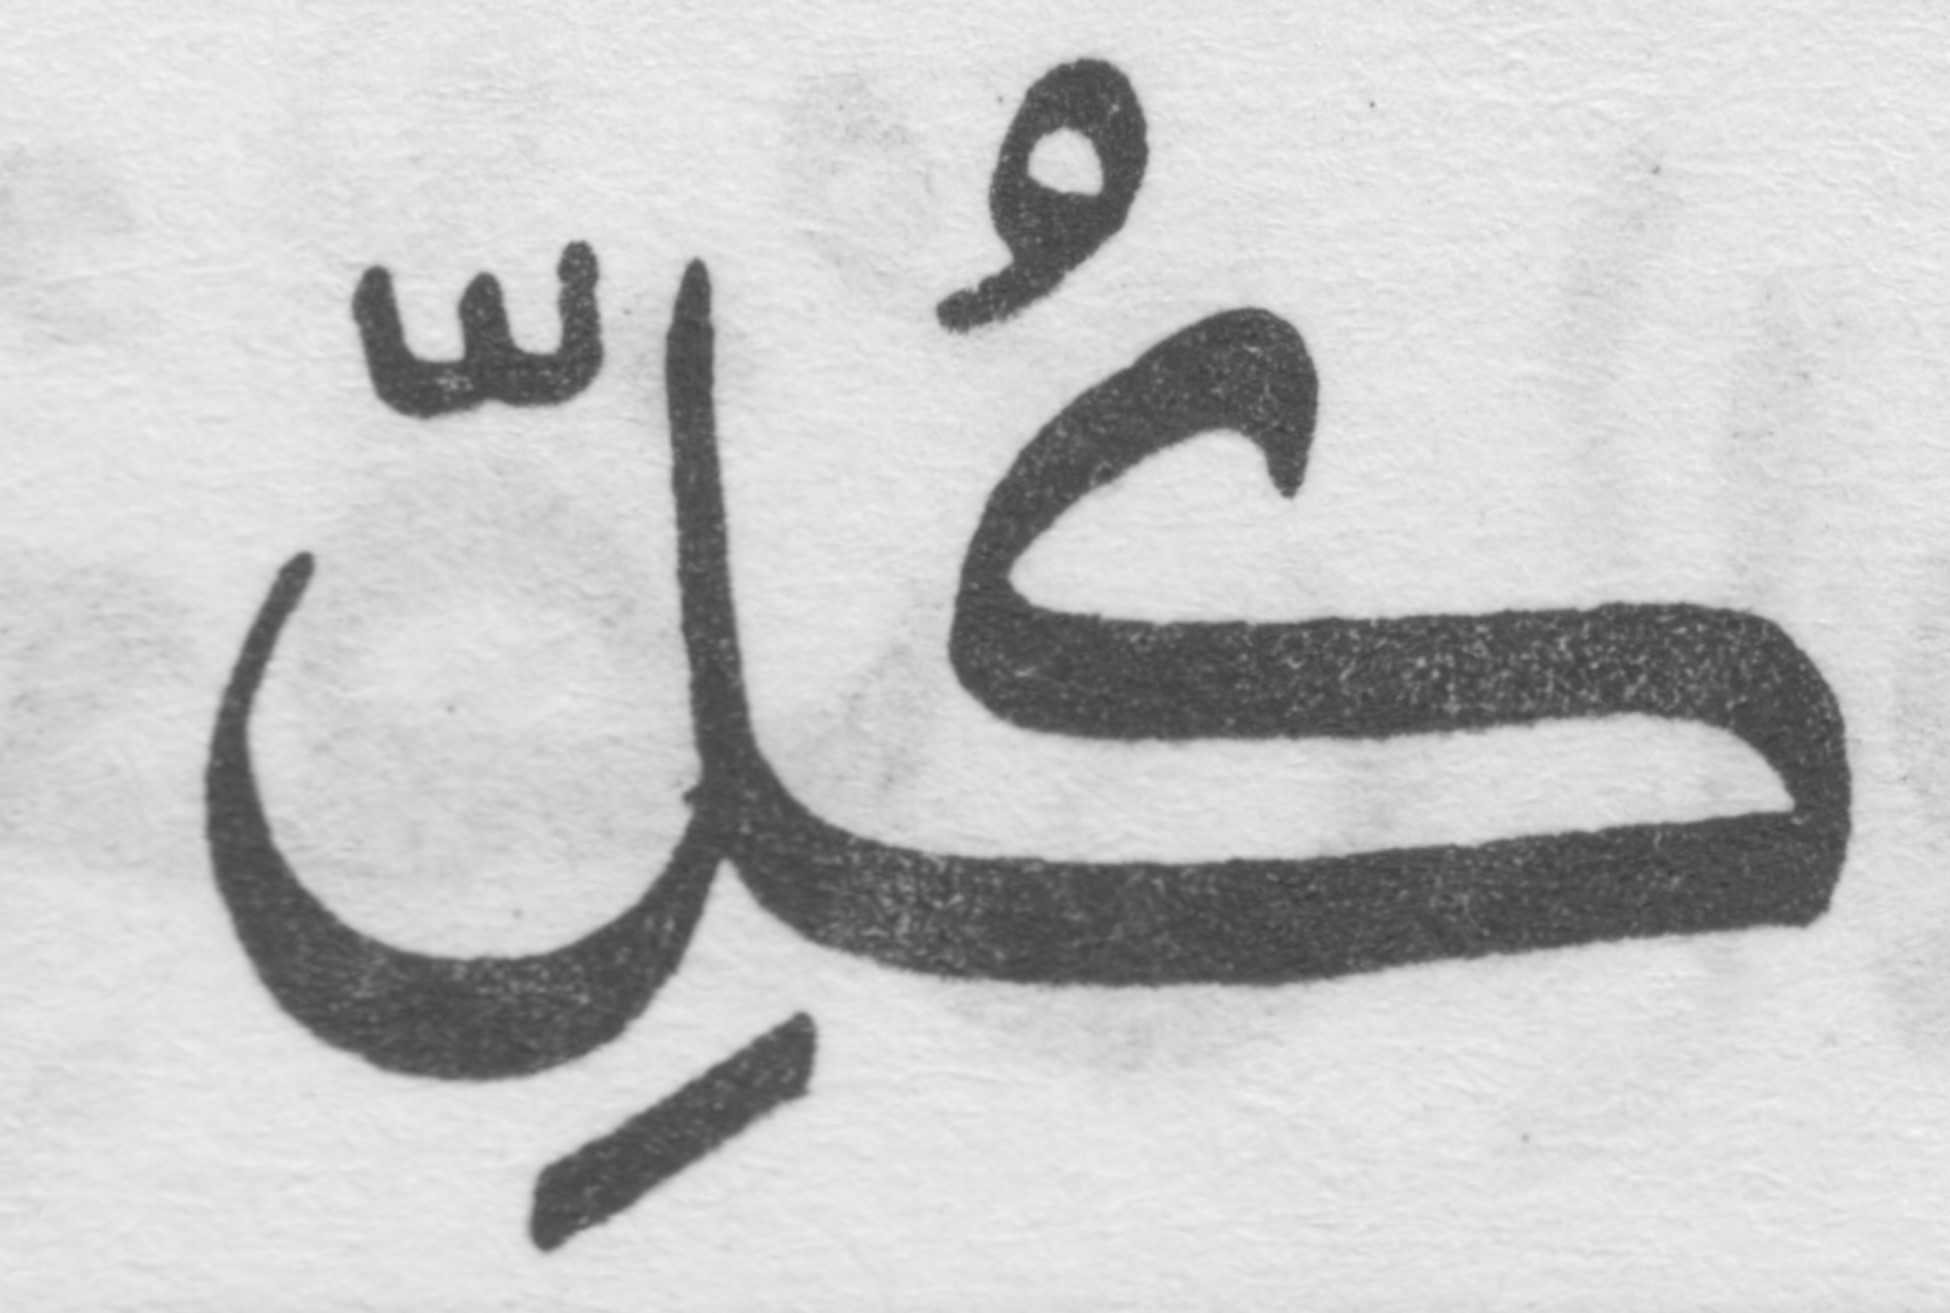 كُلِّ